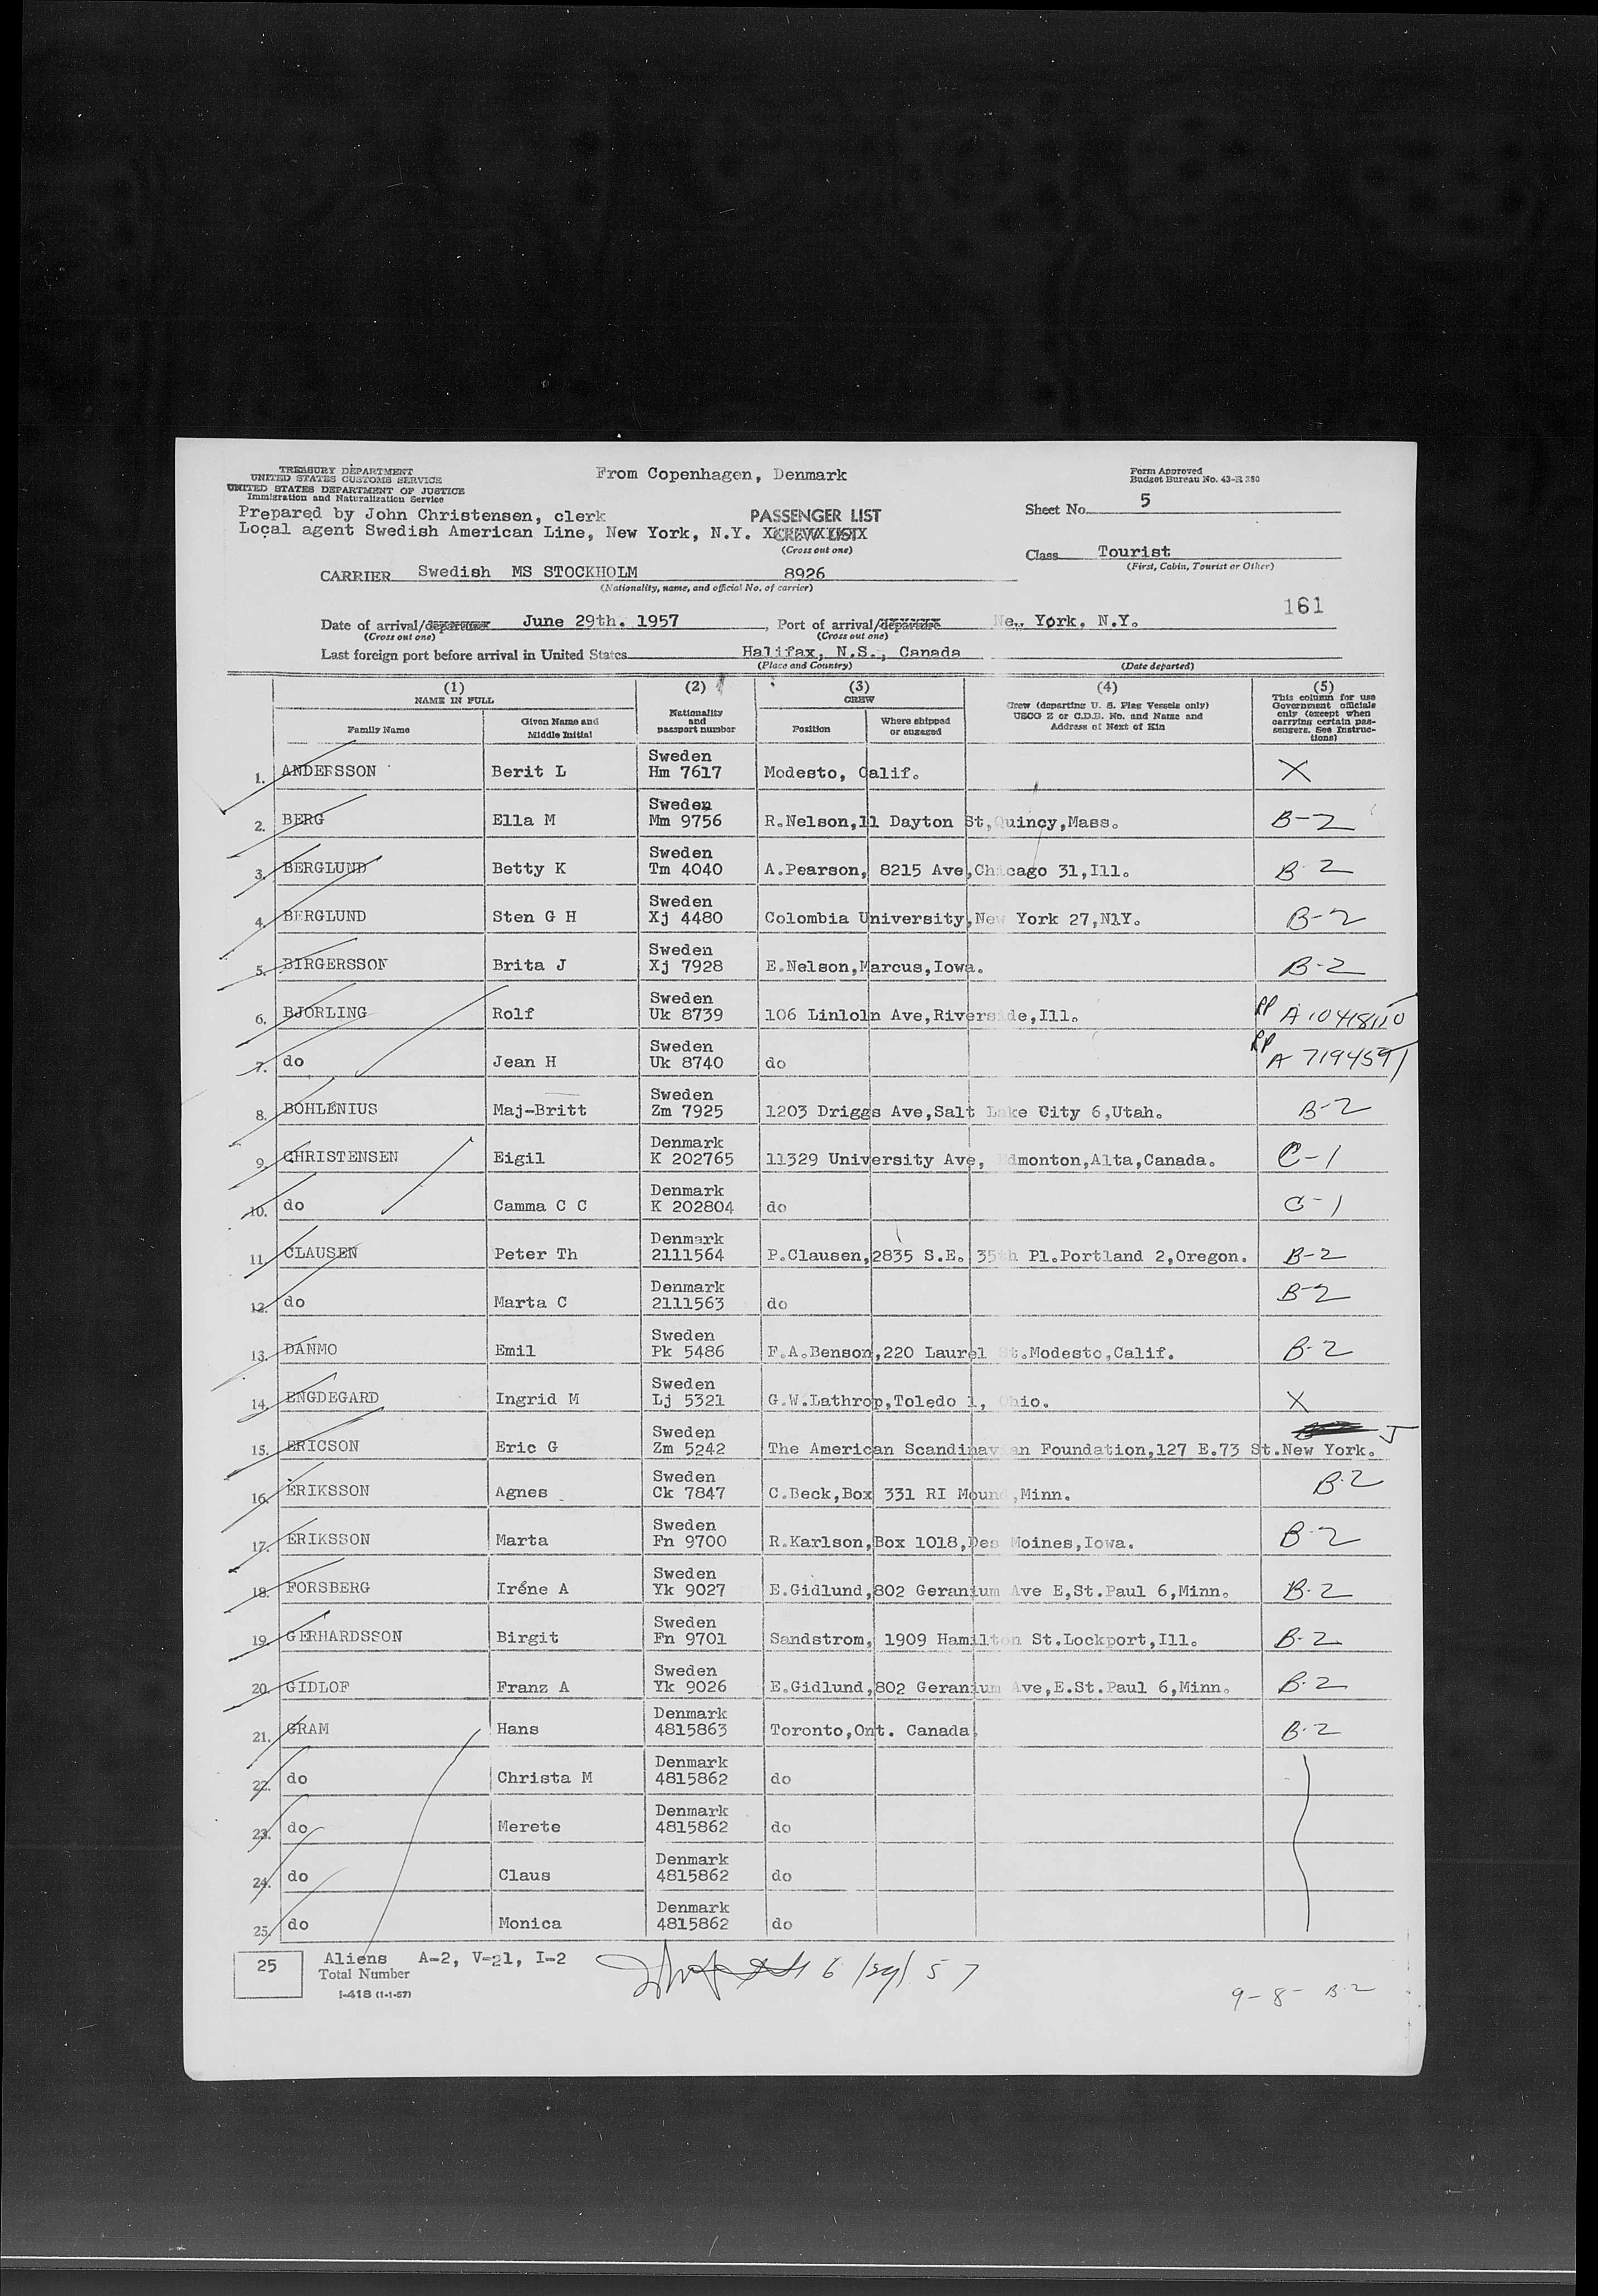 TREASURY DEPARTMENT
UNITED STATES CUSTOMS SERVICE
UNITED STATES DEPARTMENT OF JUSTICE
Immigration and Naturalization Service
From Copenhagen, Denmark
Form Approved
Budget Bureau No. 43-R 380
Prepared by John Christensen, clerk
Local agent Swedish American Line, New York, N.Y.
PASSENGER LIST
CREW LIST
(Cross out one)
Sheet No. 5
Class Tourist
(First, Cabin, Tourist or Other)
CARRIER Swedish MS STOCKHOLM 8926
(Nationality, name, and official No. of carrier)
161
Date of arrival/departure June 29th. 1957, Port of arrival/departure New York. N.Y.
(Cross out one) (Cross out one)
Last foreign port before arrival in United States Halifax, N.S., Canada
(Place and Country) (Date departed)
(1) NAME IN FULL
Family Name
Given Name and Middle Initial
(2) Nationality and passport number
(3) CREW
Position
Where shipped or engaged
(4) Crew (departing U. S. Flag Vessels only) USCG Z or C.D.B. No. and Name and Address of Next of Kin
(5) This column for use Government officials only (except when carrying certain passengers. See Instructions)
1. ANDERSSON Berit L Sweden Hm 7617 Modesto, Calif. X
2. BERG Ella M Sweden Mm 9756 R.Nelson,11 Dayton St,Quincy,Mass. B-2
3. BERGLUND Betty K Sweden Tm 4040 A.Pearson, 8215 Ave,Chicago 31,Ill. B-2
4. BERGLUND Sten G H Sweden Xj 4480 Colombia University,New York 27,N1Y. B-2
5. BIRGERSSON Brita J Sweden Xj 7928 E.Nelson,Marcus,Iowa. B-2
6. BJORLING Rolf Sweden Uk 8739 106 Linloln Ave,Riverside,Ill. RP A 10418110
7. do Jean H Sweden Uk 8740 do RP A 7194591
8. BOHLENIUS Maj-Britt Sweden Zm 7925 1203 Driggs Ave,Salt Lake City 6,Utah. B-2
9. CHRISTENSEN Eigil Denmark K 202765 11329 University Ave, Edmonton,Alta,Canada. C-1
10. do Camma C C Denmark K 202804 do C-1
11. CLAUSEN Peter Th Denmark 2111564 P.Clausen,2835 S.E. 35th Pl.Portland 2,Oregon. B-2
12. do Marta C Denmark 2111563 do B-2
13. DANMO Emil Sweden Pk 5486 F.A.Benson,220 Laurel St.Modesto,Calif. B-2
14. ENGDEGARD Ingrid M Sweden Lj 5321 G.W.Lathrop,Toledo 1, Ohio. X
15. ERICSON Eric G Sweden Zm 5242 The American Scandinavian Foundation,127 E.73 St.New York. J
16. ERIKSSON Agnes Sweden Ck 7847 C.Beck,Box 331 RI Mound,Minn. B-2
17. ERIKSSON Marta Sweden Fn 9700 R.Karlson,Box 1018,Des Moines,Iowa. B-2
18. FORSBERG Iréne A Sweden Yk 9027 E.Gidlund,802 Geranium Ave E,St.Paul 6,Minn. B-2
19. GERHARDSSON Birgit Sweden Fn 9701 Sandstrom, 1909 Hamilton St.Lockport,Ill. B-2
20. GIDLOF Franz A Sweden Yk 9026 E.Gidlund,802 Geranium Ave,E.St.Paul 6,Minn. B-2
21. GRAM Hans Denmark 4815863 Toronto,Ont. Canada B-2
22. do Christa M Denmark 4815862 do
23. do Merete Denmark 4815862 do
24. do Claus Denmark 4815862 do
25. do Monica Denmark 4815862 do
25 Aliens A-2, V-21, I-2
Total Number
I-418 (1-1-57)
6/29/57
9-8- B-2